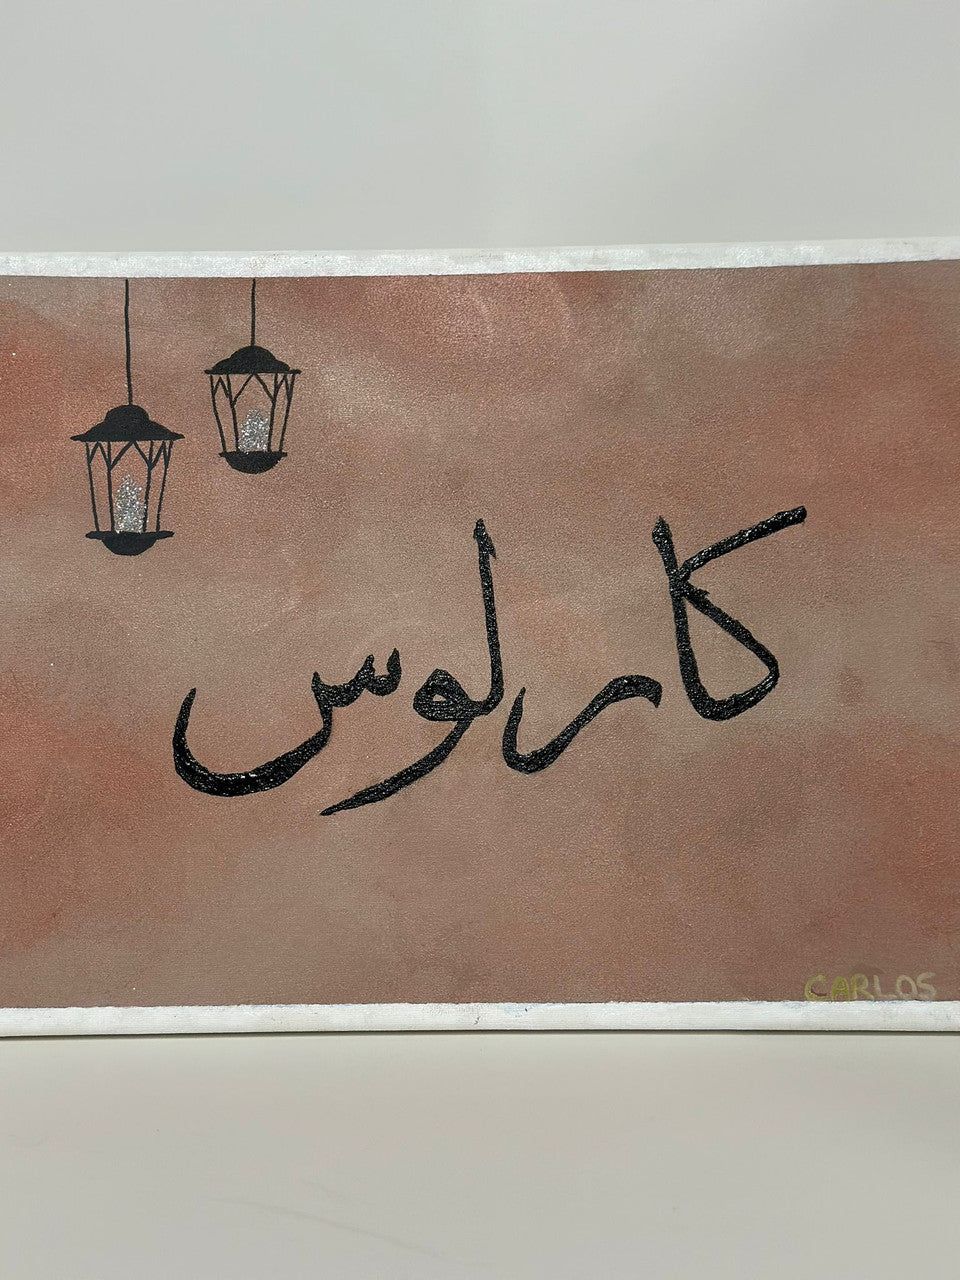 كارلوس
CARLOS